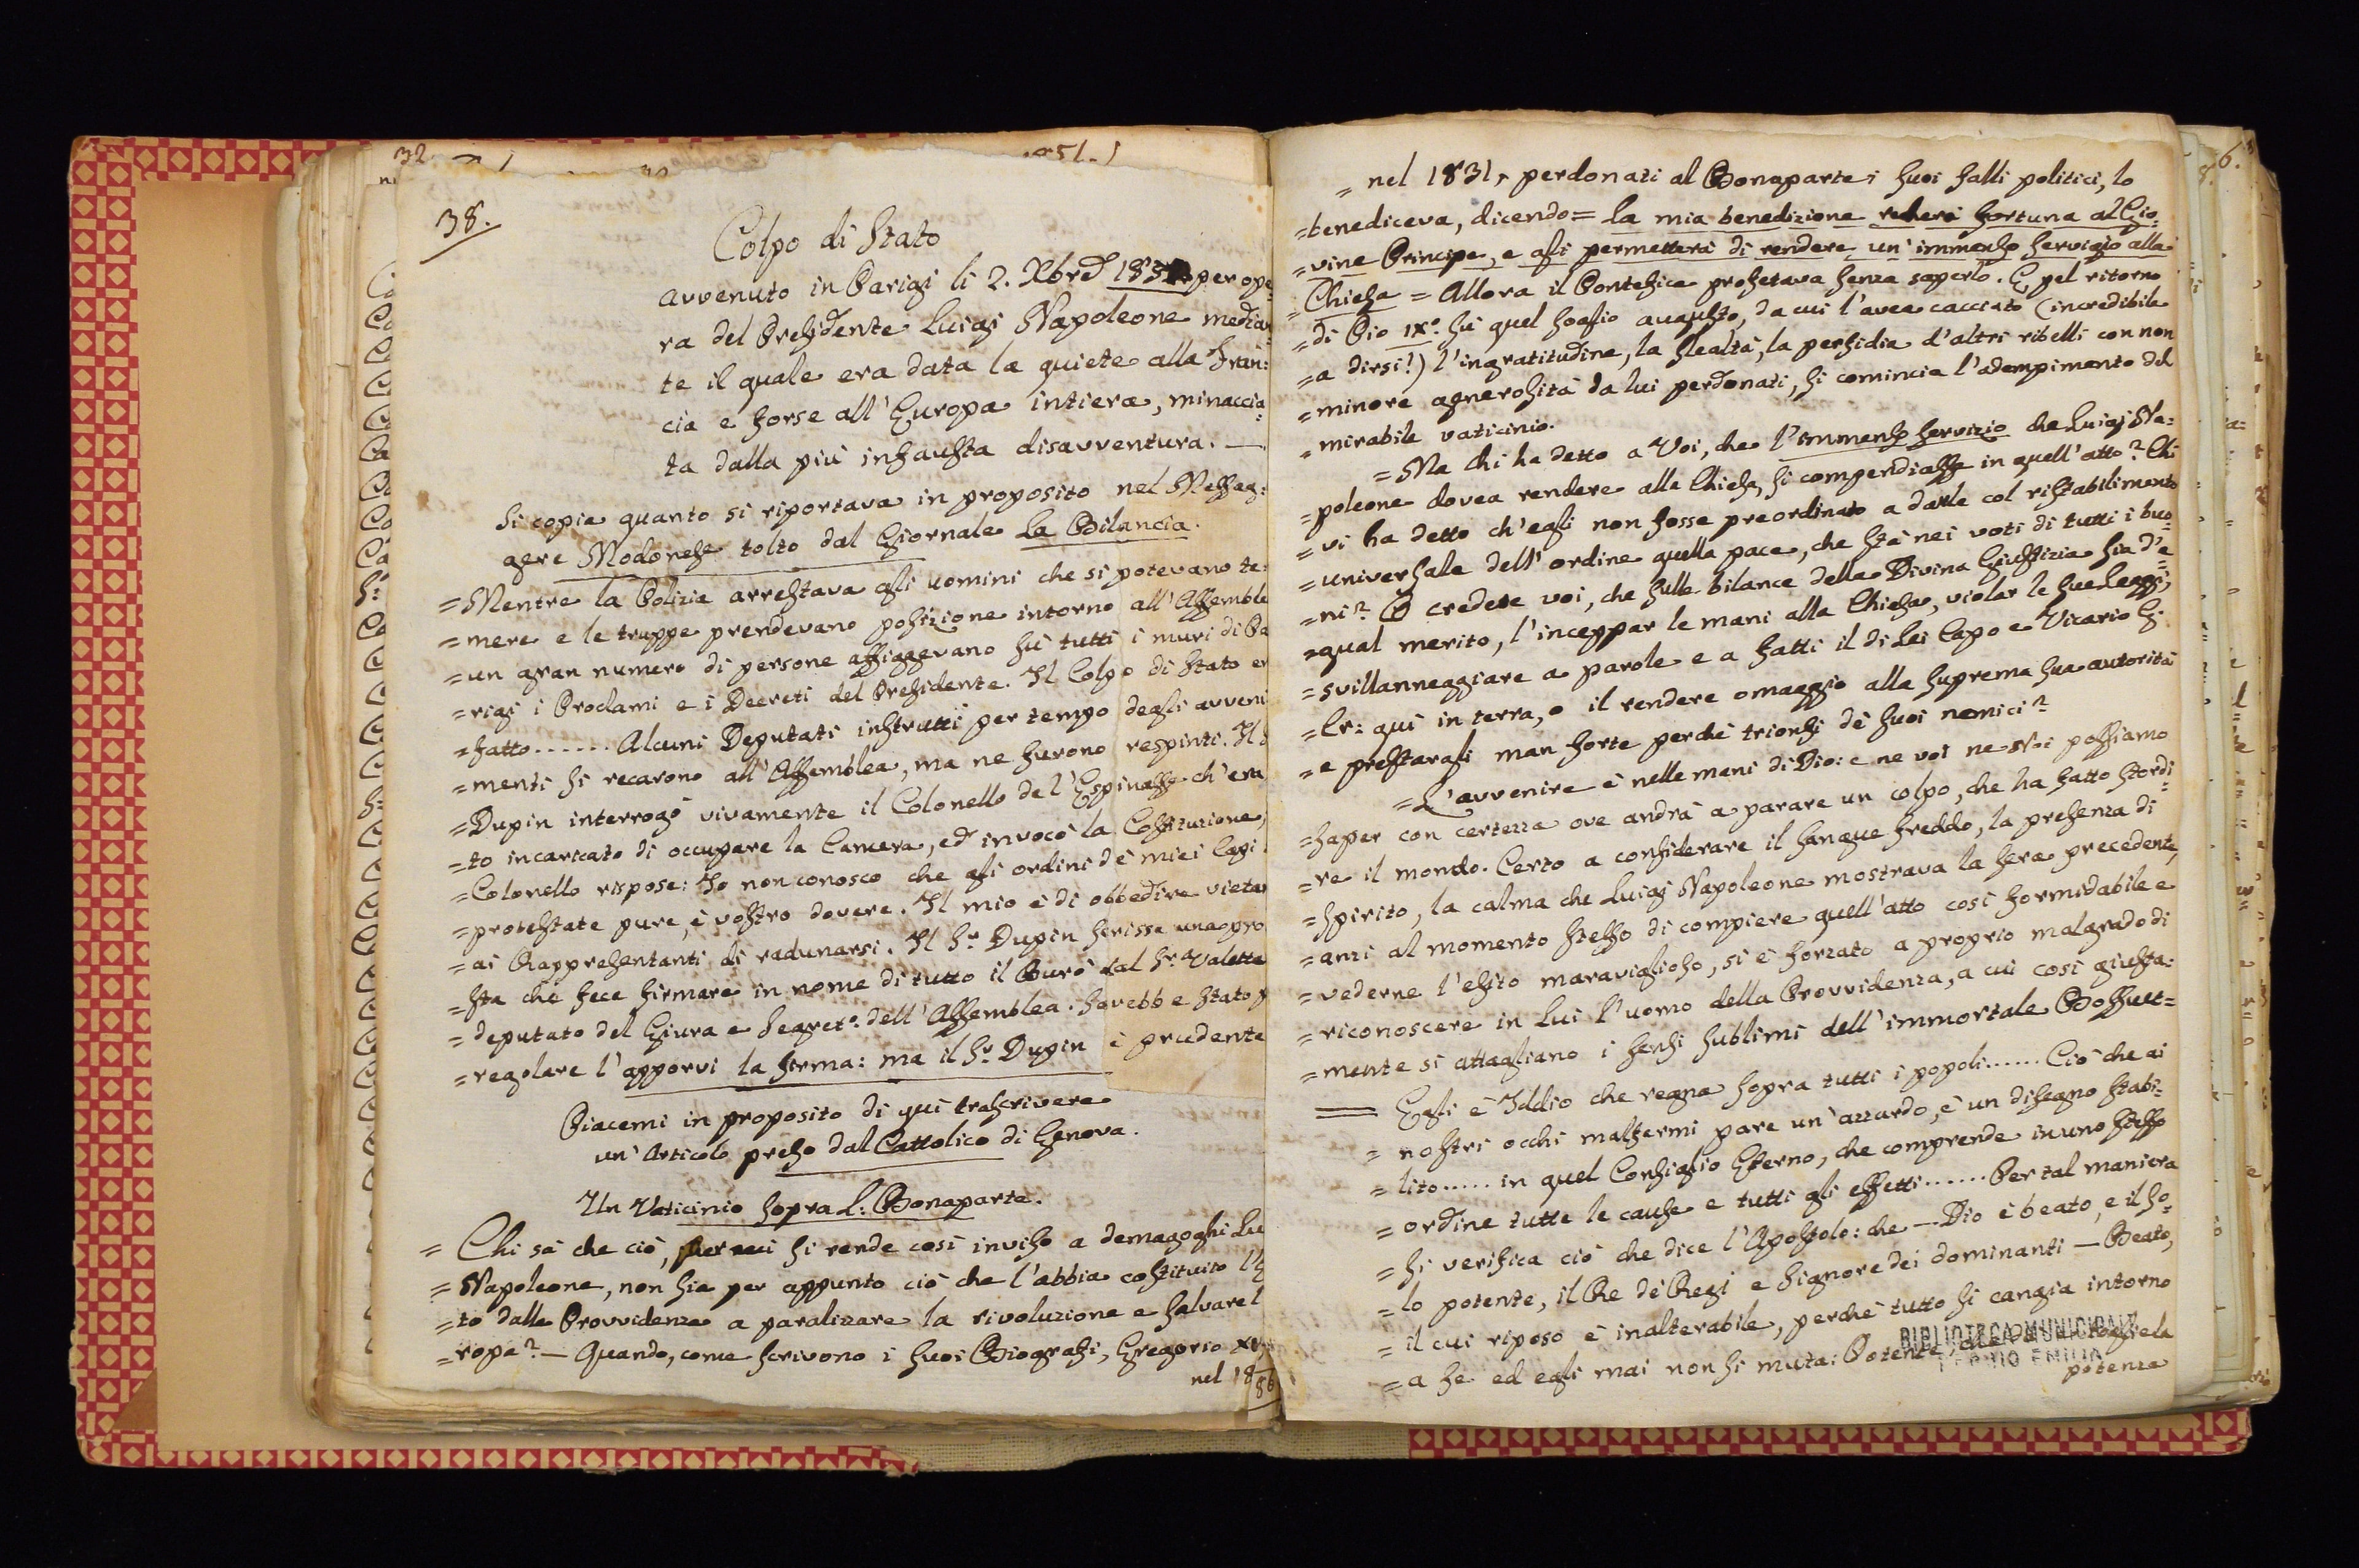 32
1851.
38.
Colpo di Stato
avvenuto in Parigi li 2. Xbre 1851 per ope=
ra del Presidente Luigi Napoleone median=
te il quale era data la quiete alla Fran=
cia e forse all'Europa intiera, minaccia=
ta dalla più infausta disavventura. —
Si copia quanto si riportava in proposito nel Messag=
gere Modonese tolto dal Giornale La Bilancia.
=Mentre la Polizia arrestava gli uomini che si potevano te=
=mere e le truppe prendevano posizione intorno all'Assemble
=un gran numero di persone affiggevano sù tutti i muri di Pa
=rigi i Proclami e i Decreti del Presidente. Il Colpo di Stato er
=fatto...... Alcuni Deputati instrutti per tempo degli avveni
=menti si recarono all'Assemblea, ma ne furono respinti. Il S
=Dupin interrogò vivamente il Colonello de l'Espinasse ch'era
=to incaricato di occupare la Camera, ed invocò la Costituzione,
=Colonello rispose: Io non conosco che gli ordini de' miei Capi
=protestate pure, è vostro dovere. Il mio è di obbedire vieta
=ai Rappresentanti di radunarsi. Il Sr. Dupin scrisse una pro
=sta che fece firmare in nome di tutto il Burò dal Sr. Valette
=deputato del Giura e Segreto. dell'Assemblea. Sarebbe stato p
=regolare l'apporvi la firma: ma il Sr. Dupin è prudente
Piacemi in proposito di quì trascrivere
un'Articolo preso dal Cattolico di Genova.
Un Vaticinio sopra L: Bonaparte.
= Chi sà che ciò, per cui si rende così inviso a demagoghi Lu
=Napoleone, non sia per appunto ciò che l'abbia costituito l'
=to dalla Provvidenza a paralizzare la rivoluzione e salvare l
=ropa? — Quando, come scrivono i suoi Biografi, Gregorio XVI
nel 18
= nel 1831, perdonati al Bonaparte i suoi falli politici, lo
=benediceva, dicendo= la mia benedizione recherà fortuna al Gio=
=vine Principe, e gli permetterà di rendere un'immenso servigio alla
=Chiesa = Allora il Pontefice profetava senza saperlo. E pel ritorno
=di Pio IX°. sù quel soglio augusto, da cui l'avea cacciato (incredibile
=a dirsi!) l'ingratitudine, la slealtà, la perfidia d'altri ribelli con non
=minore agnerosità da lui perdonati, si comincia l'adempimento del
=mirabile vaticinio.
=Ma chi ha detto a Voi, che l'immenso servizio che Luigi Na=
=poleone dovea rendere alla Chiesa, si compendiasse in quell'atto? Chi
=vi ha detto ch'egli non fosse preordinato a darle col ristabilimento
=universale dell'ordine quella pace, che stà nei voti di tutti i buo=
=ni? O credete voi, che sulle bilance della Divina Giustizia sia d'e=
=qual merito, l'inceppar le mani alla Chiesa, violar le sue Leggi,
=svillanneggiare a parole e a fatti il di Lei Capo e Vicario G.
=Cr: quì in terra, o il rendere omaggio alla suprema sua autorità
=e prestargli man forte perchè trionfi de' suoi nemici?
=L'avvenire è nelle mani di Dio: e ne voi ne Noi possiamo
=saper con certezza ove andrà a parare un colpo, che ha fatto stordi=
=re il mondo. Certo a considerare il sangue freddo, la presenza di
=spirito, la calma che Luigi Napoleone mostrava la sera precedente,
=anzi al momento stesso di compiere quell'atto così formidabile e
=vederne l'esito maraviglioso, si è forzato a proprio malgrado di
=riconoscere in Lui l'uomo della Provvidenza, a cui così giusta=
=mente si attagliano i sensi sublimi dell'immortale Bossuet=
== Egli è Iddio che regna sopra tutti i popoli...... Ciò che ai
= nostri occhi malfermi pare un'azzardo, è un disegno stabi=
=lito..... in quel Consiglio Eterno, che comprende in uno stesso
=ordine tutte le cause e tutti gli effetti...... Per tal maniera
=si verifica ciò che dice l'Apostolo: che — Dio è beato, e il so=
=lo potente, il Re de' Regi e Signore dei dominanti — Beato,
=il cui riposo è inalterabile, perchè tutto si cangia intorno
=a se ed egli mai non si muta: Potente,
potenza
BIBLIOTECA MUNICIPALE
REGGIO EMILIA
6.